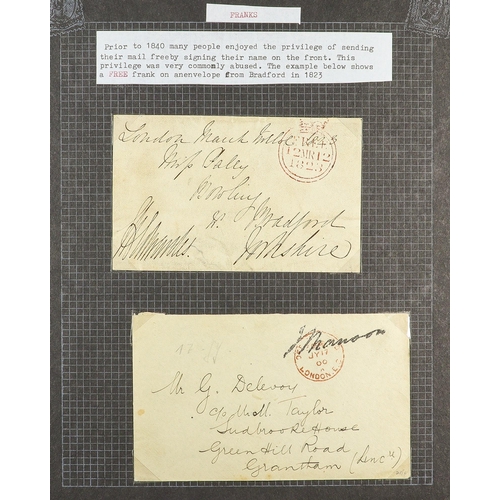 FRANKS
Prior to 1840 many people enjoyed the privilege of sending
their mail freeby signing their name on the front. This
privilege was very commonly abused. The example below shows
a FREE frank on anenvelope from Bradford in 1823
London March
Miss Paley
Bowling
Nr. Bradford
Yorkshire
12MR12
1823
JY 17
00
LONDON
Mr G. Delevoy
c/o M.M. Taylor
Sudbrooke House
Green Hill Road
Grantham (Lincs)